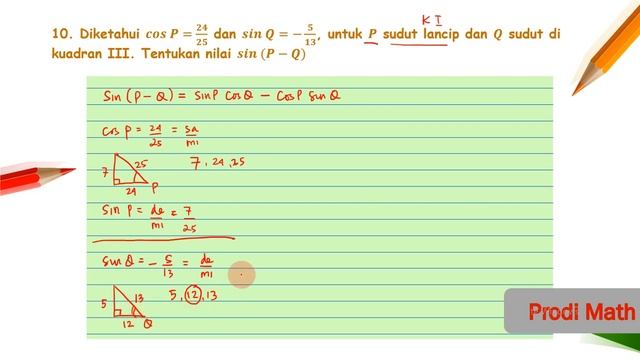 K I
10. Diketahui cos P = 24/25 dan sin Q = −5/13, untuk P sudut lancip dan Q sudut di
kuadran III. Tentukan nilai sin (P − Q)
Sin (P − Q) = sin P cos Q − cos P sin Q
cos P = 24/25 = sa/mi
7 25 24 P
7, 24, 25
sin P = de/mi = 7/25
sin Q = − 5/13 = de/mi
5 13 12 Q
5, 12, 13
Prodi Math